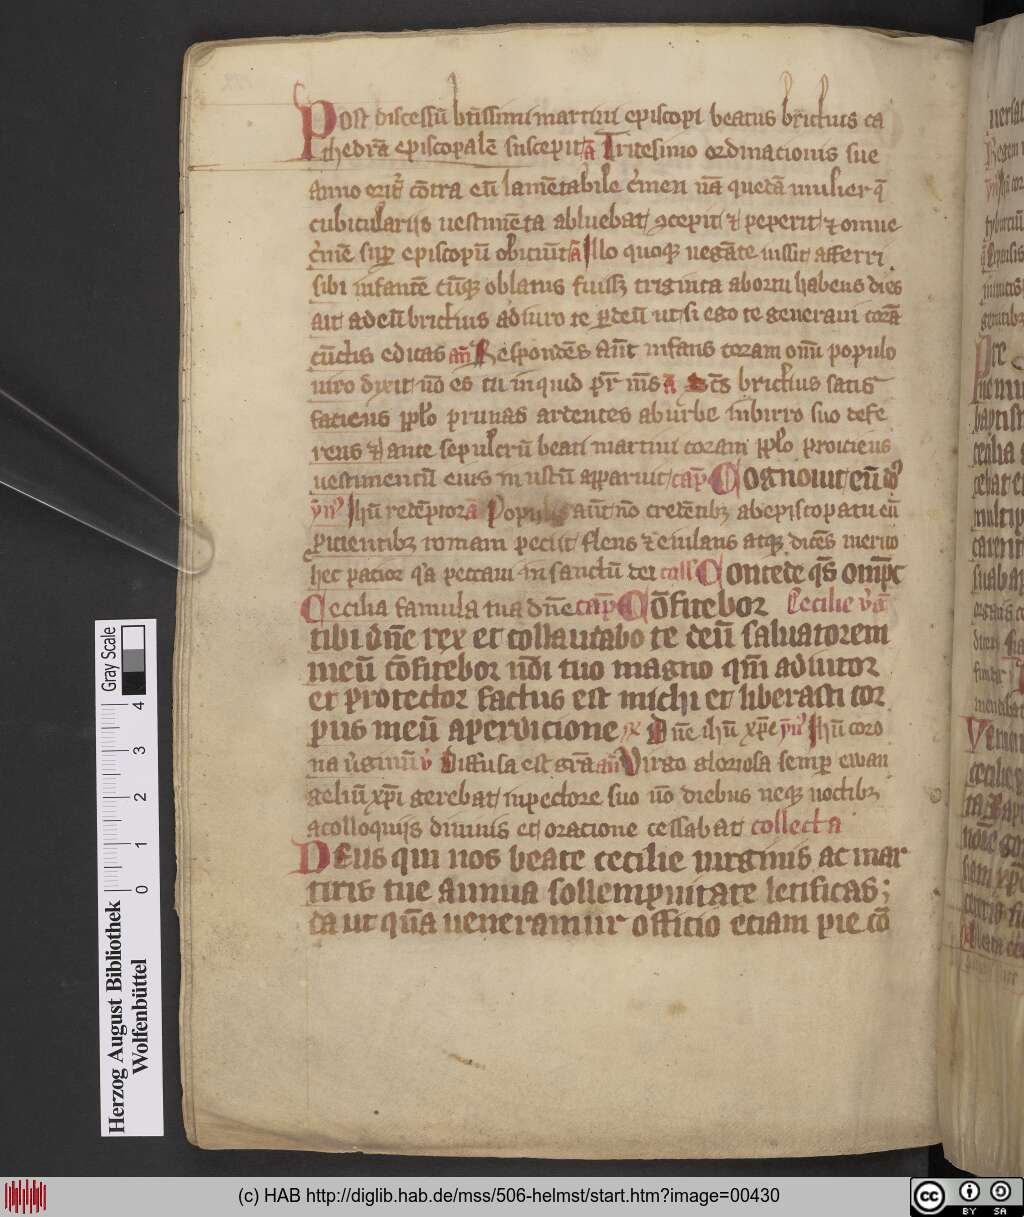 Post discessū btissimi martini episcopi beatus brictius ca
thedrā episcopalē suscepit ā Tricesimo ordinacionis sue
anno orit᷑ cōtra eū lamētabile c̓men nā quedā mulier q̄
cubicularijs uestimēta abluebat ꝯcepit ⁊ peperit ⁊ omne
c̓mē sup̲ episcopū obiciūt ā Illo quoqꝫ negāte iussit afferri
sibi infantē cūqꝫ oblatus fuissꝫ triginta abortu habens dies
ait ad eū brictius adiuro te ꝑ deū ut si ego te generaui corā
cūctis edicas añ Respondēs aūt infans coram oīm populo
uiro dixit nō es tu inquid pr̄ m̄s ā Sc̄s brictius satis
faciens ꝓplo prunas ardentes ab urbe in birro suo defe
rens ⁊ ante sepulcrū beati martini coram ꝓplo proiciens
uestimentū eius in ustū apparuit cap̄ Cognouit eū d᷒
ym̄ Ihū redēptorā Populis aūt nō credētibꝫ ab episcopatu eū
ꝑicientibꝫ romam peciit flens ⁊ eiulans atqꝫ dicēs merito
hec pacior q̓a peccaui in sanctū dei coll̄ Concede qs̄ omp̄c
Cecilia famula tua dn̄e cap̄ Cōfitebor Cecilie v̓ḡ
tibi dn̄e rex et collaudabo te deū saluatorem
meū cōfitebor nōi tuo magno qm̄ adiutor
et protector factus est michi et liberasti cor
pus meū a perdicione ꝶ Dn̄e ihū xp̄e ym̄ Ihū coro
na ūginū v̓ Diffusa est grā añ Virgo gloriosa semꝑ ewan
geliū xp̄i gerebat in pectore suo nō diebus neqꝫ noctibꝫ
a colloquijs diuinis et oracione cessabat collecta
Deus qui nos beate cecilie uirginis ac mar
tiris tue annua sollempnitate letificas;
da ut quā ueneramur officio eciam pie cō
Gray Scale
0 1 2 3 4
Herzog August Bibliothek
Wolfenbüttel
(c) HAB http://diglib.hab.de/mss/506-helmst/start.htm?image=00430
cc BY SA